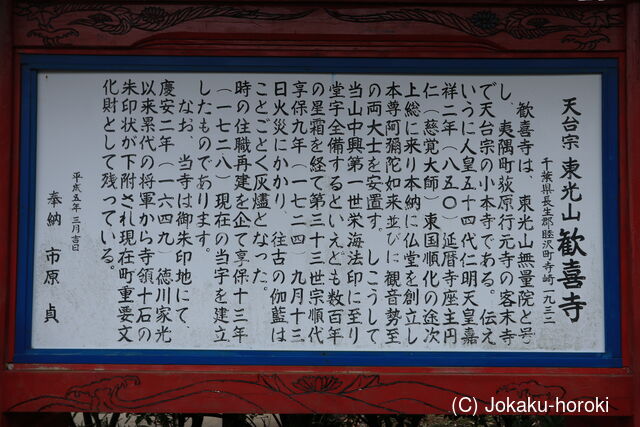 天台宗 東光山 歓喜寺
千葉県長生郡睦沢町寺崎一九三二
歓喜寺は、東光山無量院と号
し、夷隅町荻原行元寺の客末寺
で天台宗の小本寺である。伝え
いうに人皇五十四代仁明天皇嘉
祥二年(八五〇)延暦寺座主円
仁(慈覚大師)東国順化の途次
上総に来り本納に仏堂を創立し
本尊阿彌陀如来並びに観音勢至
の両大士を安置す。しこうして
当山中興第一世栄海法印に至り
堂宇全備するといえども数百年
の星霜を経て第三十三世宗順代
享保九年(一七二四)九月十三
日火災にかかり、往古の伽藍は
ことごとく灰燼となった。
時の住職再建を企て享保十三年
(一七二八)現在の当宇を建立
したものであります。
なお、当寺は御朱印地にて、
慶安二年(一六四九)徳川家光
以来累代の将軍から寺領十石の
朱印状が下附され現在町重要文
化財として残っている。
平成五年三月吉日
奉納 市原 貞
(C) Jokaku-horoki